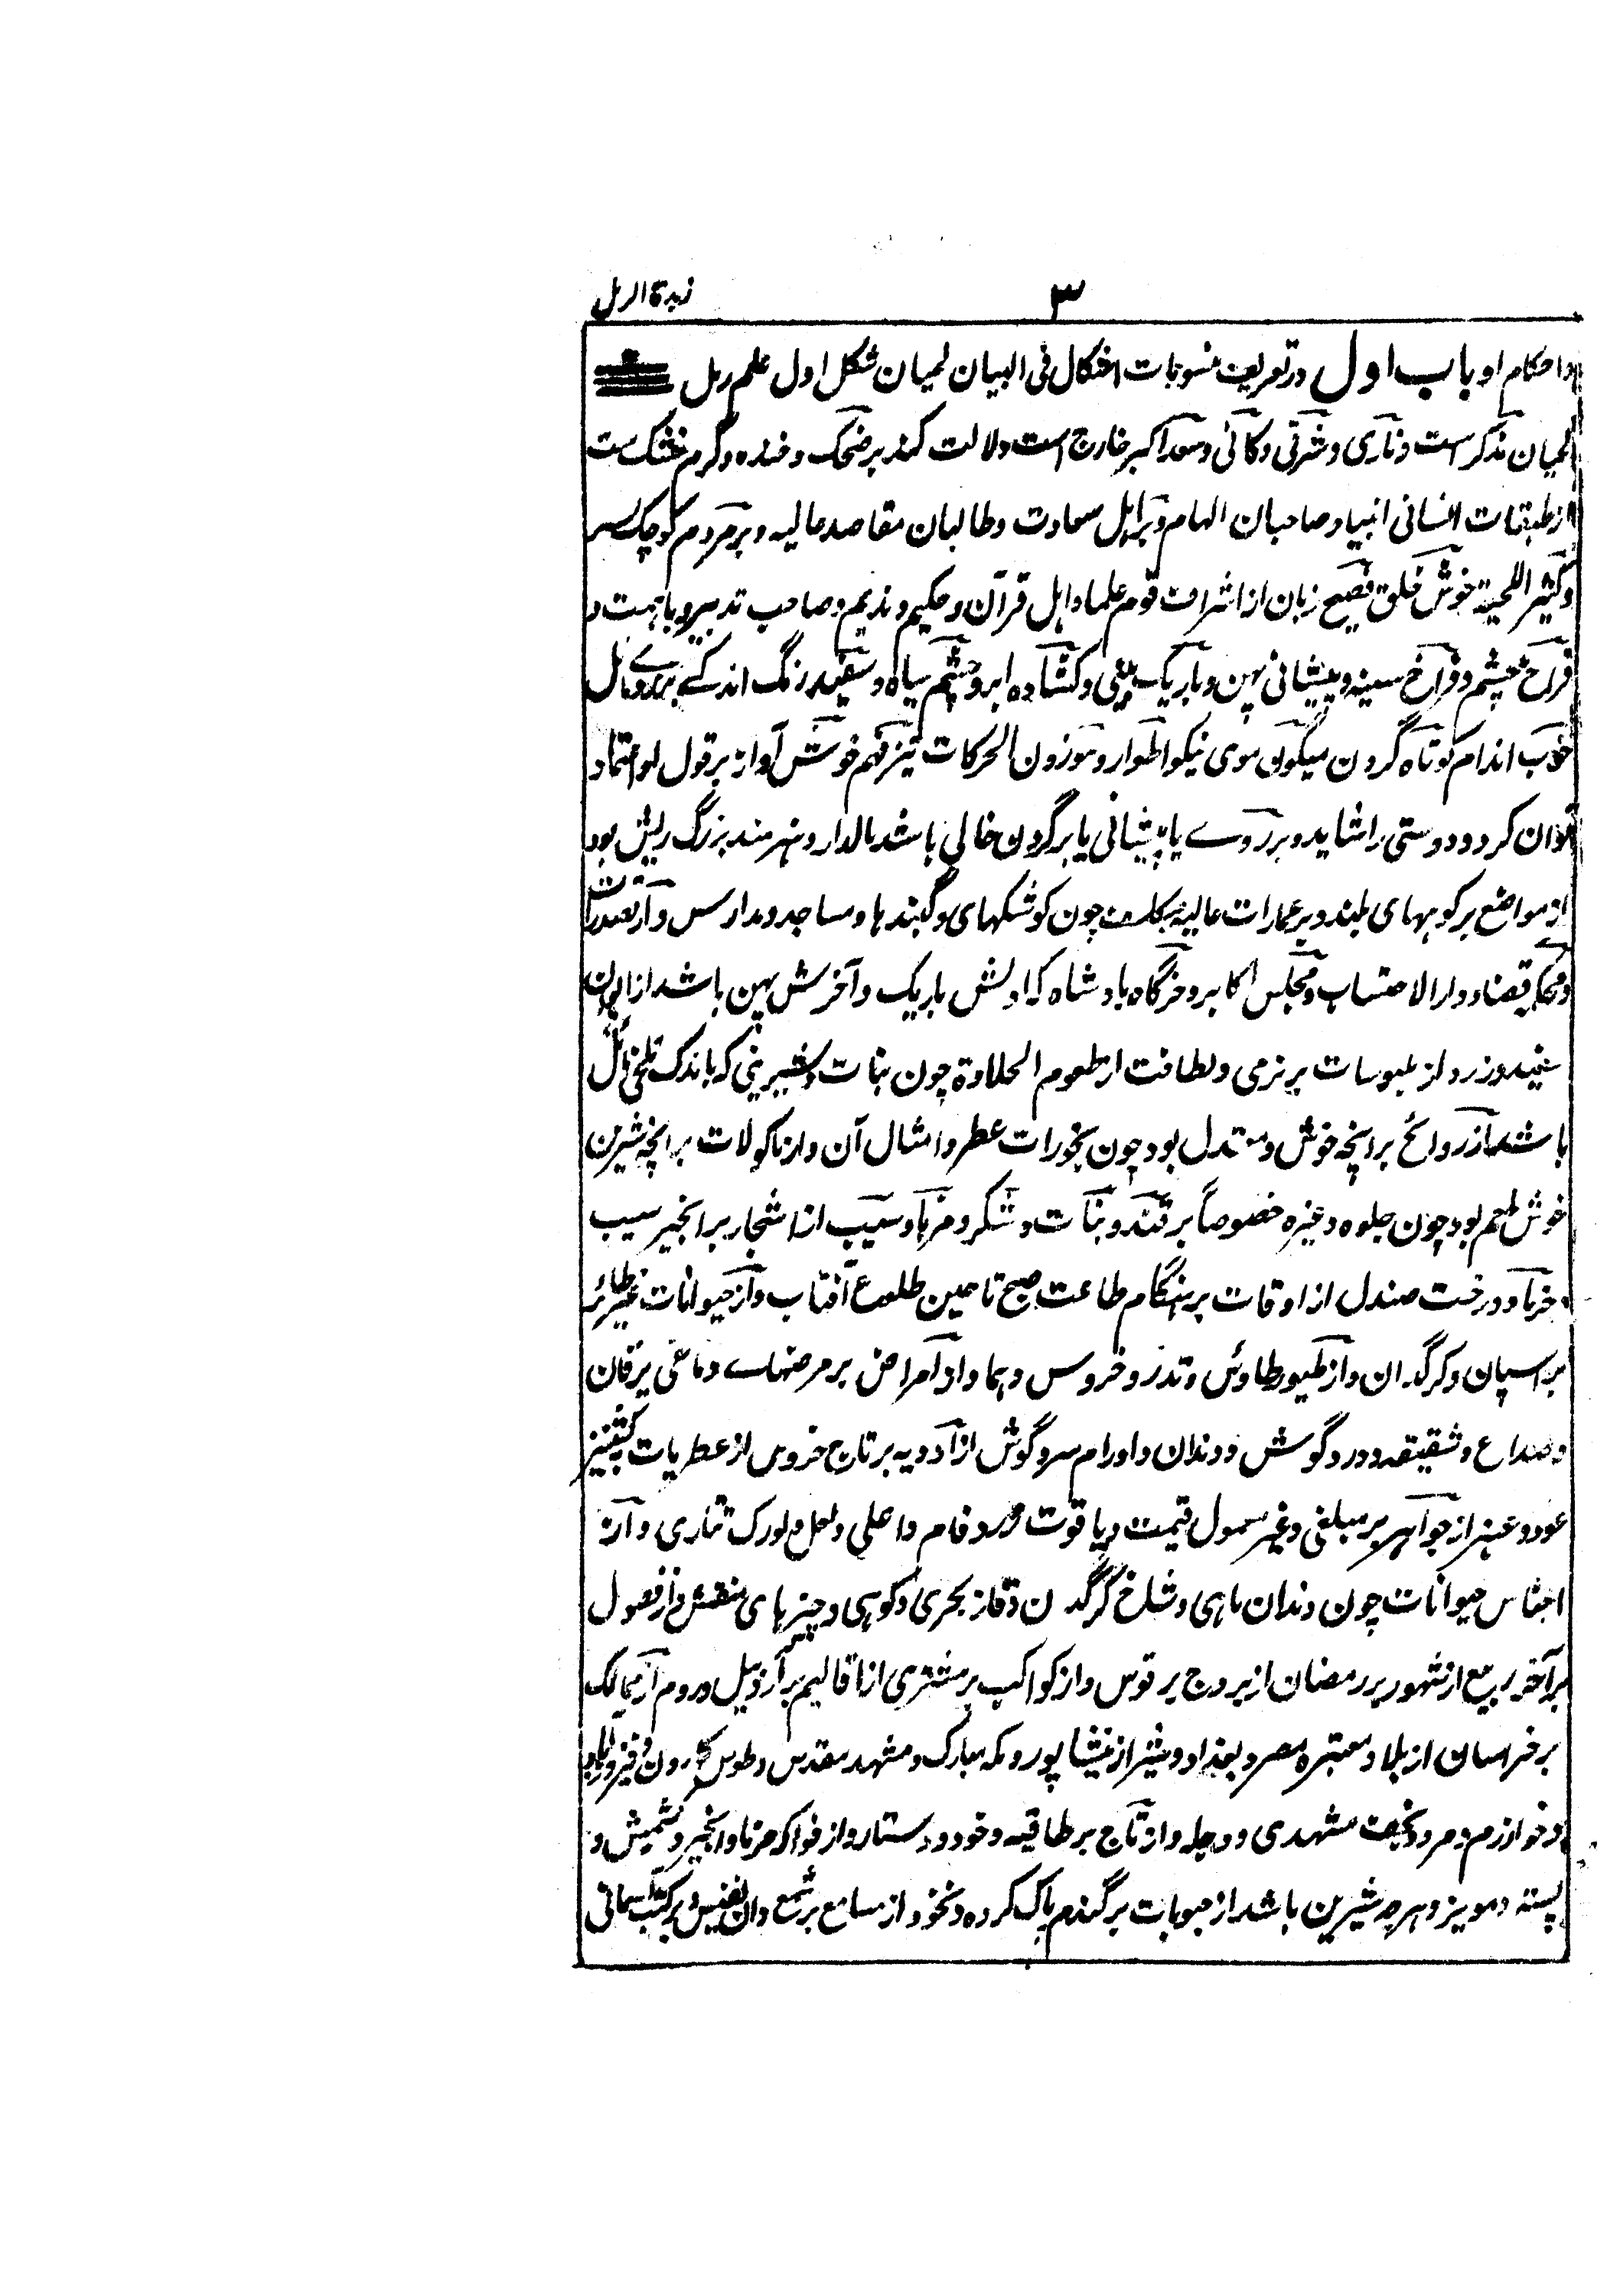 زبدة الرمل
۳
واحکام او باب اول در تعریف منسوبات اشکال فی البیان لحیان شکل اول علم رمل
لحیان مذکر است و ناری و شرقی و کانی و سعد اکبر خارج است دلالت کند بر ضحک و خنده و گرم خشک ست
از طبقات انسانی انبیا و صاحبان الهام و بر اہل سعادت و طالبان مقاصد عالیہ و بر مردم کوچک سر
و کثیر اللحیة خوش خلق فصیح زبان از اشراف قوم علما و اہل قرآن و حکیم و ندیم و صاحب تدبیر و با ہمت و
فراخ چشم و فراخ سینہ و پیشانی پہن و باریک بینی و کشادہ ابرو چشم سیاہ و سفید رنگ اندکے بزردی مائل
خوب اندام کوتاہ گردن میگون موی نیکو اطوار و موزون الحرکات تیز فہم خوش آواز بر قول او اعتماد
توان کرد و دوستی را شاید و بر روے یا پیشانی یا بر گردن خالی باشد مالدار و ہنرمند بزرگ ریش بود
از مواضع بر کوہہای بلند و بر عمارات عالیہ بتکلف چون کوشکہای و گنبدہا و مساجد و مدارس و از تصدرات
و محکمہ قضا و دار الاحتساب و مجلس اکابر و خرگاہ بادشاہ کہ اولش باریک و آخرش پہن باشد از الوان
سفید و زرد از ملبوسات بر نرمی و لطافت از طعوم الحلاوة چون نبات و شیرینی کہ باندک تلخی مائل
باشد از روائح بر انچہ خوش و معتدل بود چون بخورات عطر و امثال آن و از ماکولات بر انچہ شیرین
خوش طعم بود چون حلوہ و غیرہ خصوصاً بر قند و نبات و شکر و خرما و سیب از اشجار بر انجیر سیب
خرما و درخت صندل از اوقات بر ہنگام طاعت صبح تا حین طلوع آفتاب و از حیوانات غیر طائر
بر اسپان و کرگدان و از طیور طاؤس و تذرو خروس و ہما و از امراض بر مرضہاے دماغی یرقان
و صداع و شقیقہ و درد گوش و دندان و اورام سر و گوش از ادویہ بر تاج خروس از عطریات کشنیز
عود و عنبر از جواہر بر مبلغی و غیر معمول قیمت و یاقوت ورد فام و اعلی و لعل و لورک تتاری و از
اجناس حیوانات چون دندان ماہی و شاخ کرگدن و قاز بحری و کوہی و چیزہای منقش و از فصول
بر آخر ربیع از شہور بر رمضان از بروج بر قوس و از کواکب بر مشتری از اقالیم بر اردبیل و روم از ممالک
بر خراسان از بلاد معتبرہ مصر و بغداد و شیراز نیشاپور و مکہ مبارک و مشہد مقدس و طوس و
و خوارزم و مرو و نجف مشہدی و دجلہ و از تاج بر طاقیہ و خود و دستار و از فواکہ خرما و انجیر و کشمش و
پستہ و مویز و ہرچہ شیرین باشد از حبوبات بر گندم پاک کردہ و نخود از مسامع بر شمع دان نفیس و بر کتب سمانی